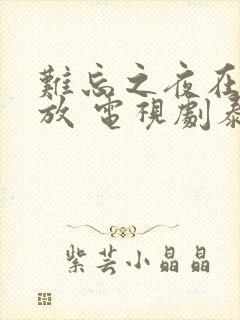 難忘之夜在
放 電視劇泰
紫芸小晶晶